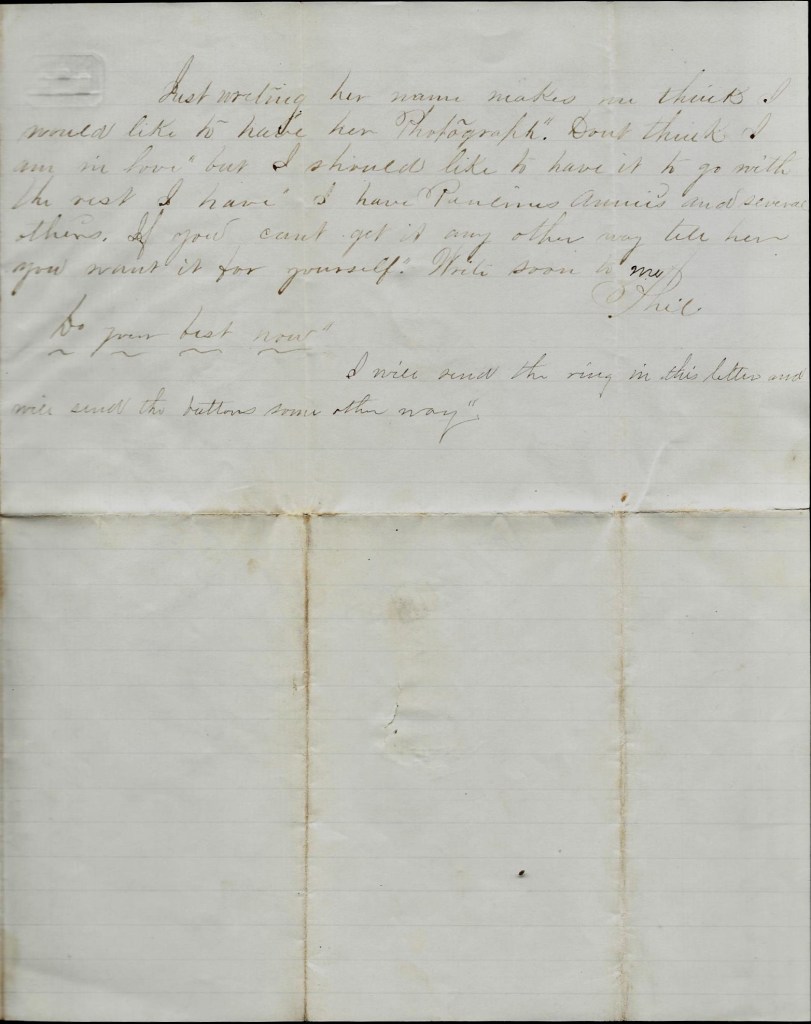 Just writing her name makes me think I
would like to have her "Photograph". Dont think I
am in love" but I should like to have it to go with
the rest I have" I have Paulines Annies and several
others. If you cant get it any other way tell her
you want it for yourself". Write soon to me
Phil.
Do your best now"
I will send the ring in this letter and
will send the buttons some other way".